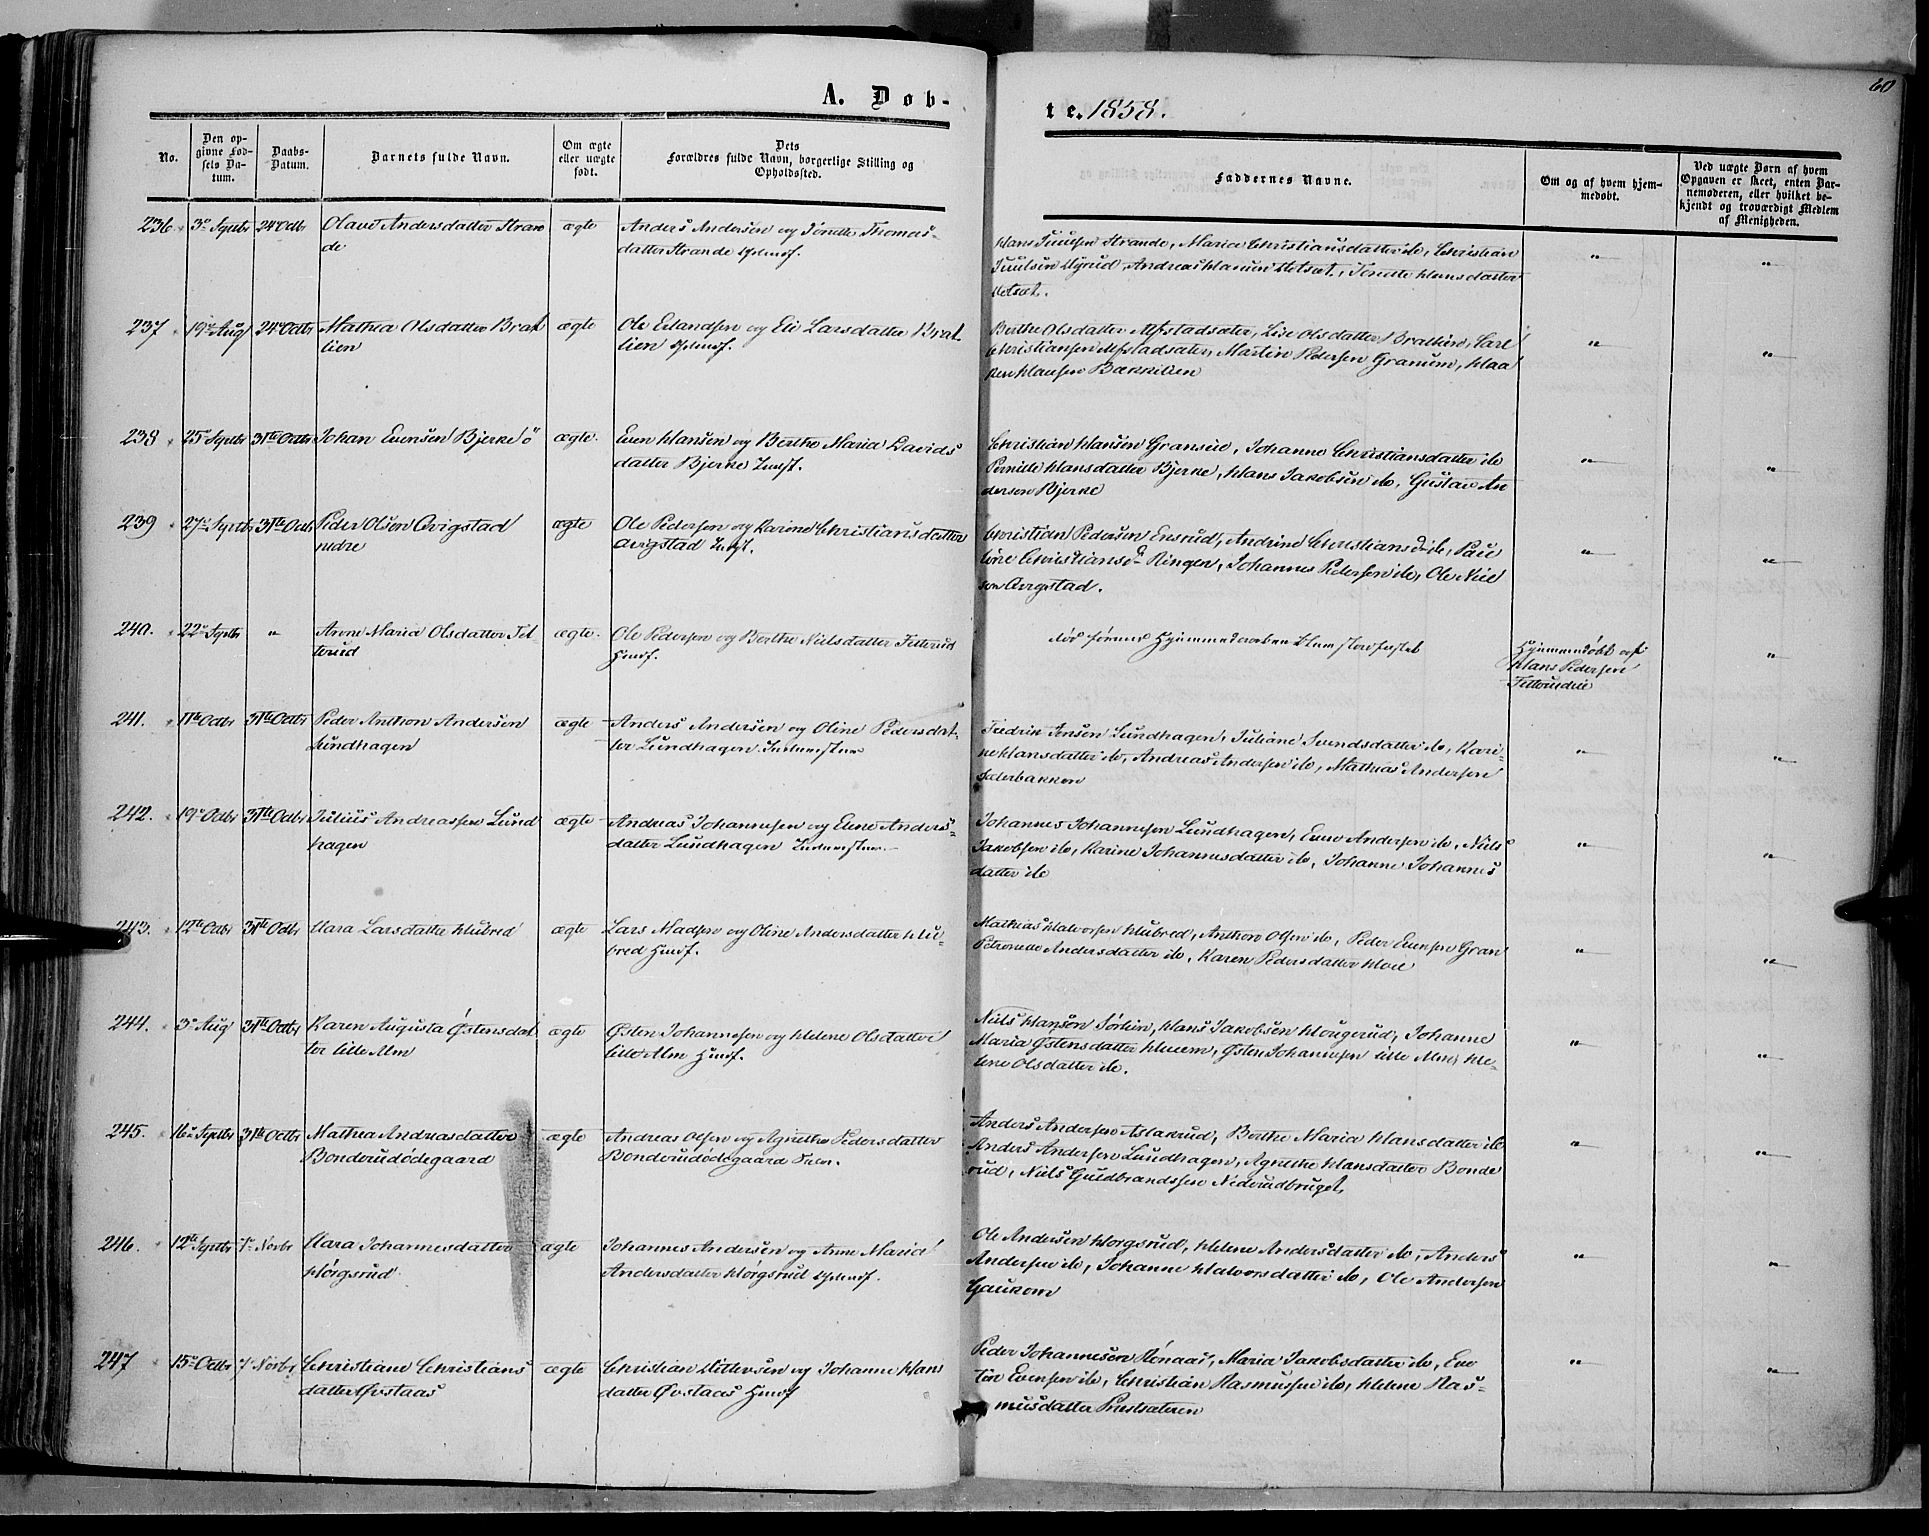 60
A. Døb-
te. 1858.
No.
Den op-
givne Fød-
sels Da-
tum.
Daabs-
Datum.
Barnets fulde Navn.
Om ægte
eller uægte
født.
Dets
Forældres fulde Navn, borgerlige Stilling og
Opholdssted.
Faddernes Navne.
Om og af hvem hjem-
medøbt.
Ved uægte Børn af hvem
Opgaven er skeet, enten Bar-
nemoderen, eller hvilket be-
kjendt og troværdigt Medlem
af Menigheden.
236 3 Septbr 24 Octbr Olave Andersdatter Stran ægte Anders Andersen og Tónette Thomas-
de datter Strande
Hans Juulsen Strande, Maria Christiansdatter ib, Christian
Juulsen Andreas Hansen Tonette Hansdatter
237 19 Aug 24 Octbr Mathea Olsdatter Brat ægte Ole Erlandsen og Eli Larsdatter Brat-
lien lien
Berthe Olsdatter Lise Olsdatter Bratlien, Carl
Christiansen Martin Pedersen Granum, Haa
ken Hansen Bakkelien
238 25 Septbr 31te Octbr Johan Evensen Bjerke ægte. Even Hansen og Berthe Maria Davids
datter Bjerke
Christian Hansen Johanne Christiansdatter ib
Pernille Hansdatter Bjerke, Hans Jakobsen ib, Gustav An
dersen Bjerke
239 27 Septbr 31te Octbr Peder Olsen Avigstad ægte Ole Pedersen og Karine Christiansdatter
nedre Avigstad
Christian Pedersen Ensrud, Andrine Christiansd ib, Pau
line Christiansd Ringen, Johannes Pedersen ib, Ole Niel
sen Avigstad.
240. 22 Septbr " Anne Maria Olsdatter Fet ægte. Ole Pedersen og Berthe Nielsdatter Fetterud
terud
Død førend Hjemmedaaben blev stadfæstet
Hjemmedøbt af
Hans Pedersen
241. 11te Octbr 31te Octbr Peder Anthon Andersen ægte Anders Andersen og Oline Pedersdat-
Lundhagen ter Lundhagen
Fredrik Jensen Lundhagen, Juliane Svendsdatter ib, Kari-
ne Hansdatter ib, Andreas Andersen ib, Mathias Andersen
242. 19 Octbr 31te Octbr Julius Andreassen Lund ægte Andreas Johannesen og Anders-
hagen datter Lundhagen
Johannes Johannesen Lundhagen, Andersen ib, Niels
Jakobsen ib, Karine Johannesdatter ib, Johanne Johannes
datter ib
243. 12te Octbr 31te Octbr Clara Larsdatter Hubred ægte Lars Madsen og Oline Andersdatter Hu-
bred
Mathias Halvorsen Hubred, Anthon Olsen ib, Peder Evensen Gran
Petronelle Andersdatter ib, Karen Pedersdatter
244. 3 Aug 31te Octbr Karen Augusta Østensdat ægte Østen Johannesen og Helene Olsdatter
ter lille Alm lille Alm
Niels Hansen Sørlien, Hans Jakobsen Hougerud, Johanne
Maria Østensdatter Østen Johannesen lille Alm, He-
lene Olsdatter ib.
245. 16 Septbr 31te Octbr Mathea Andreasdatter ægte Andreas Olsen og Agnethe Pedersdatter
Bonderudødegaard Bonderudødegaard
Anders Andersen Aslakrud, Berthe Maria Hansdatter ib
Anders Andersen Lundhagen, Agnethe Hansdatter Bonde
rud, Niels Guldbrandsen Nederudbruget.
246. 12te Septbr 7 Novbr Clara Johannesdatter ægte Johannes Andersen og Anne Maria
Hørgsrud Andersdatter Hørgsrud
Ole Andersen Horgsrud, Helene Andersdatter ib, Anders
Andersen ib, Johanne Halvorsdatter ib, Ole Andersen
Gaukom
247 15 Octbr 7 Novbr Christiane Christians ægte Christian Ditlevsen og Johanne Hans
datter Øvstaas datter Øvstaas
Peder Johannesen Rønaas, Maria Jakobsdatter ib, Eve
Evensen ib, Christian Rasmussen ib, Helene Ras-
musdatter Prestsæteren